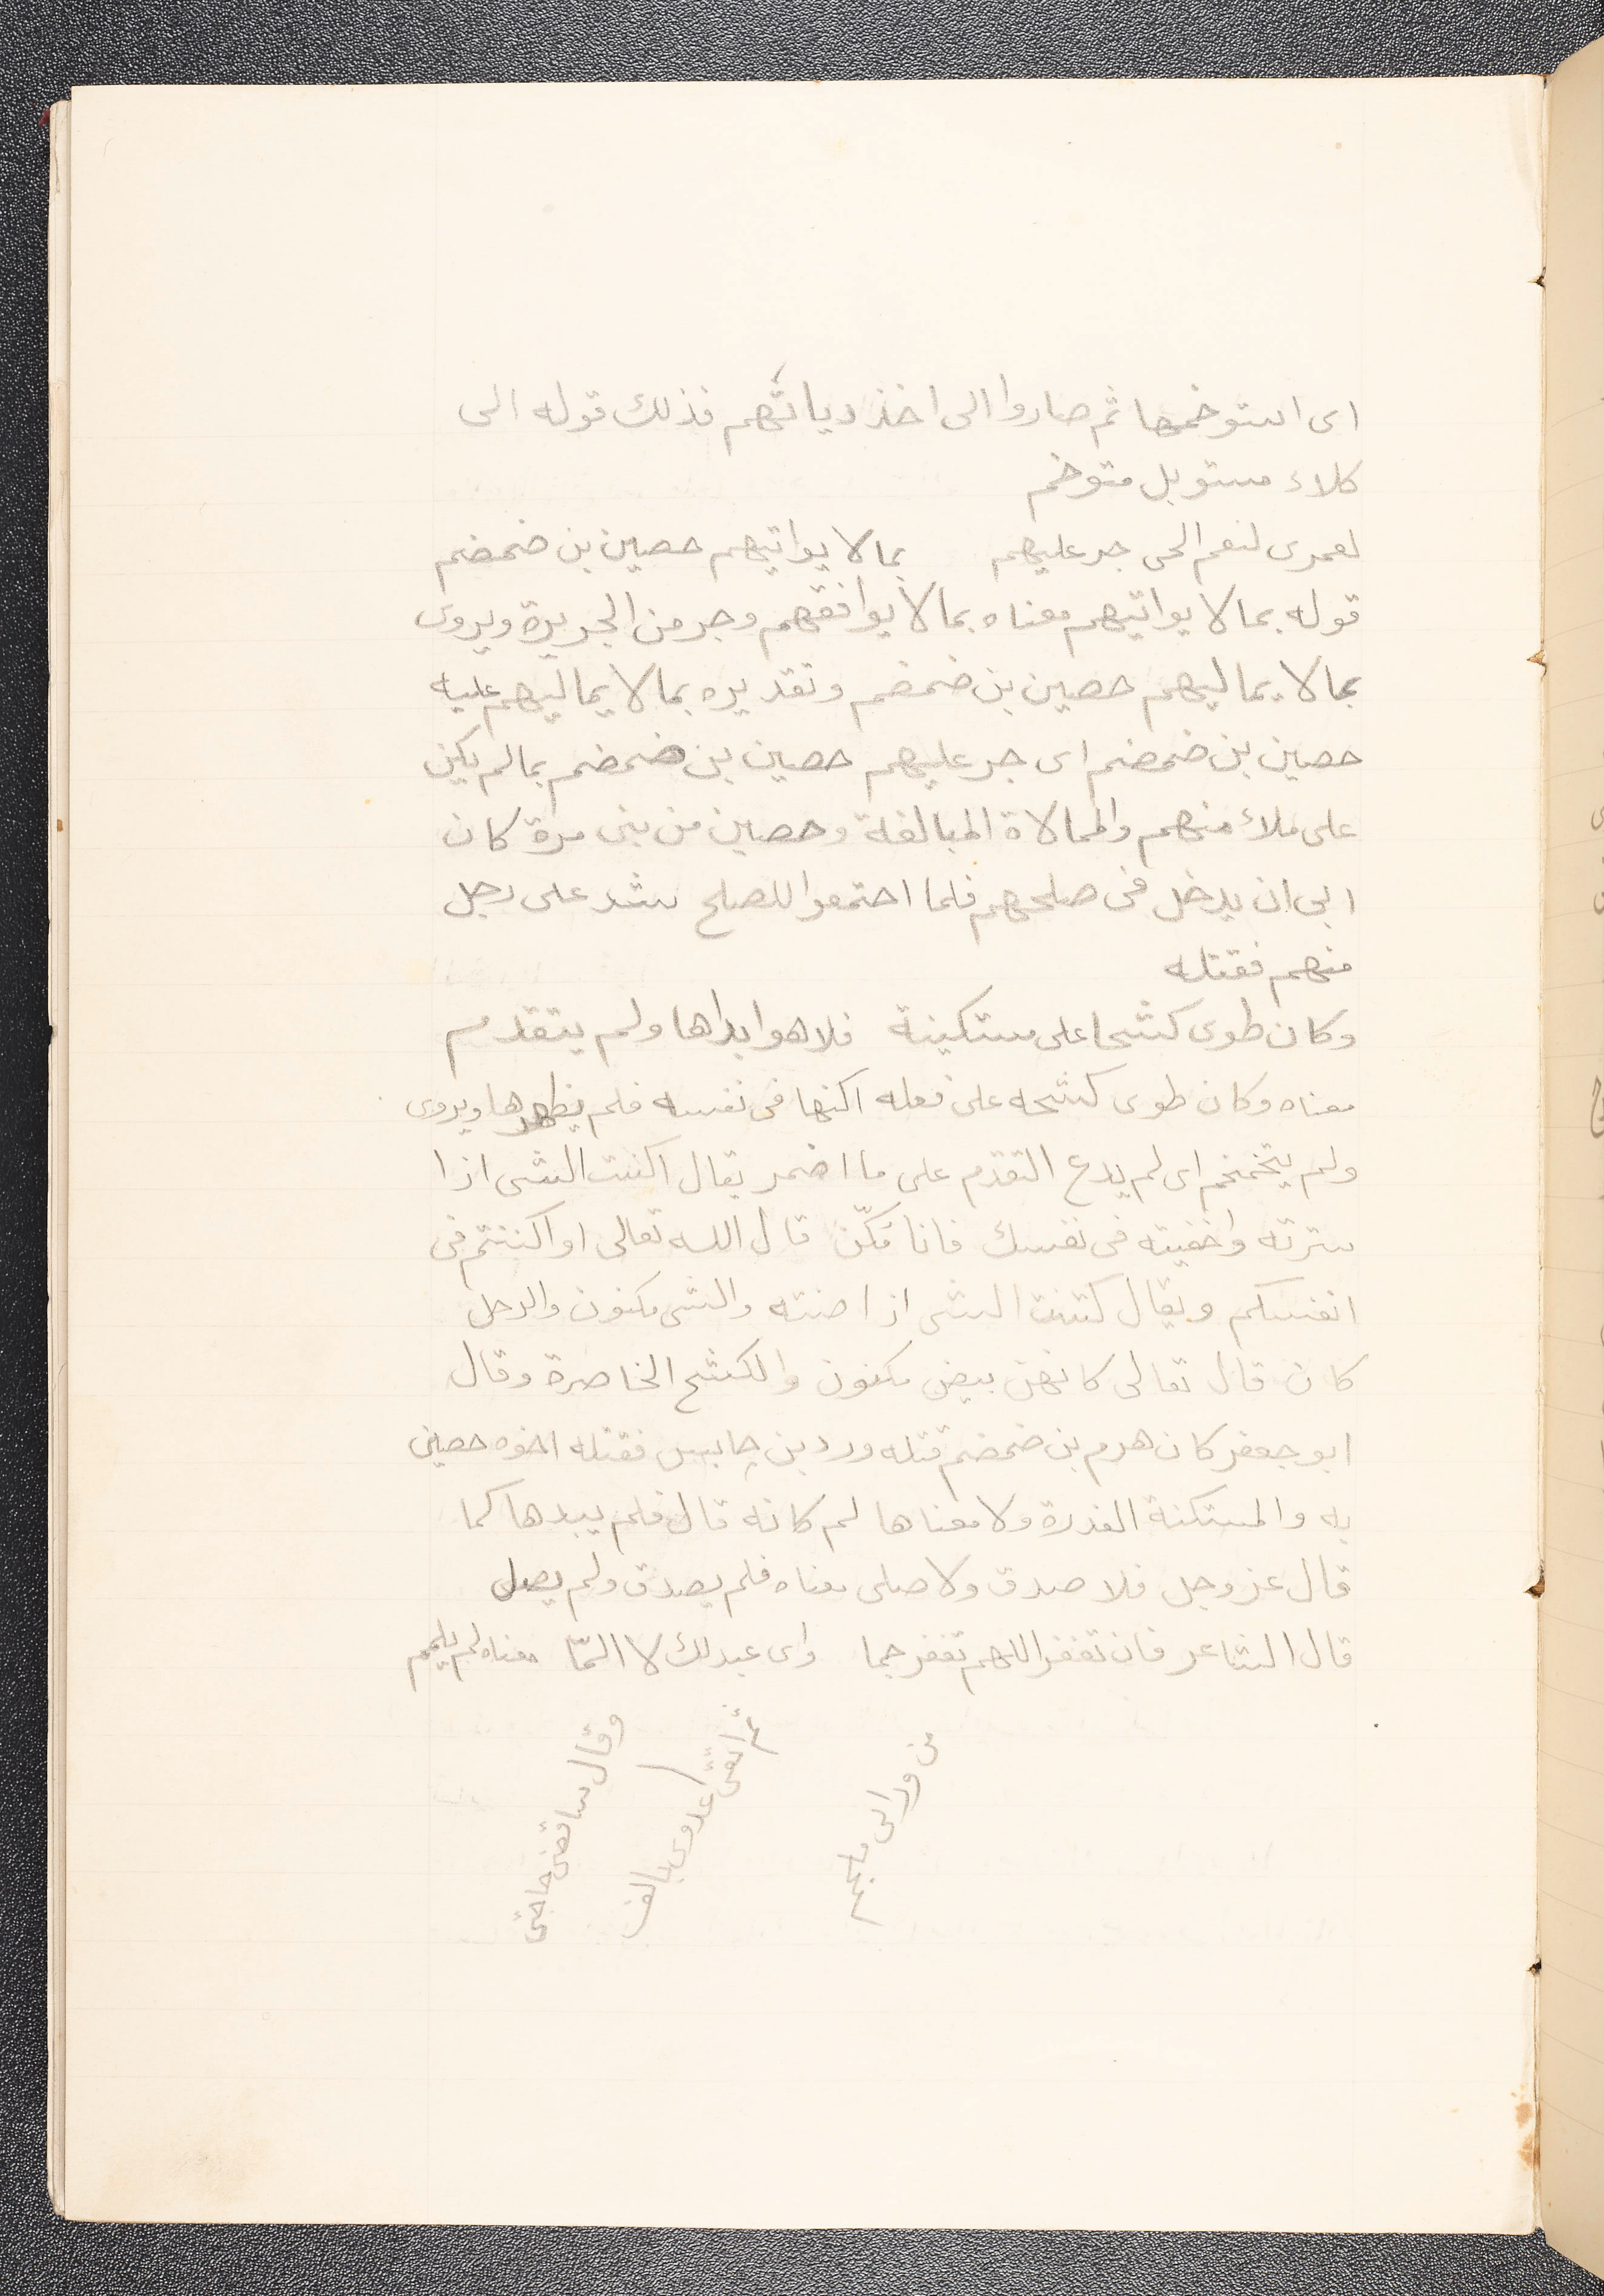 اى استوخمها ثم صاروا الى اخذ دياتهم فذلك قوله الى
كلاء مستوبل متوخم
لعمرى لنعم الحى جر عليهم بما لا يواتيهم حصين بن ضمضم
قوله بما لا يواتيهم معناه بما لا يوافقهم وجر من الجريرة ويروى
بما لا يماليهم حصين بن ضمضم وتقديره بما لا يماليهم عليه
حصين بن ضمضم اى جر عليهم حصين بن ضمضم بما لم يكن
على ملاء منهم والممالاة المبالغة وحصين من بنى مرة كان
ابى ان يدخل فى صلحهم فلما احتمعوا للصلح شد على رجل
منهم فقتله
وكان طوى كشحا على مستكينة فلا هو ابداها ولم يتقدم
معناه وكان طوى كشحه على فعله اكنها فى نفسه فلم يظهرها ويروى
ولم يتخمخم اى لم يدع التقدم على ما اضمر يقال اكنت الشى اذا
سترته واخفيته فى نفسك فانا مكنّ قال الله تعالى او اكننتم فى
انفسكم ويقال كننت الشى اذا صنته والشى مكنون والرحل
كان قال تعالى كانهن بيض مكنون والكشح الخاصرة وقال
ابو جعفر كان هرم بن ضمضم قتله ورد بن حابس فقتله اخوه حصين
به والمستكنة الغدرة ولا معناها لم كانه قال فلم يبدها كما
قال عز وجل فلا صدق ولا صلى معناه فلم يصدق ولم يصل
قال الشاعر فان تغفر اللهم تغفر جما واى عبد لك لا المّا معناه لم يلمم
وقال ساقضى حاجتى
ثم اتقى عدوى بالف
من ورائى ملجم